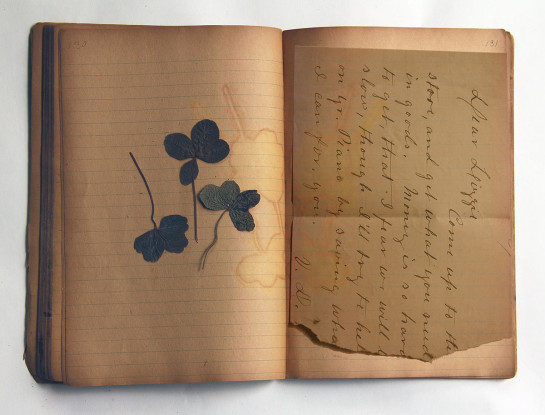 131
Dear Lizzie
Come up to the
store, and get what you need
in goods. Money is so hard
to get, that I fear we will
slow, though I'll try to help
on yr. Piano by saving what
I can for you.
J. D.